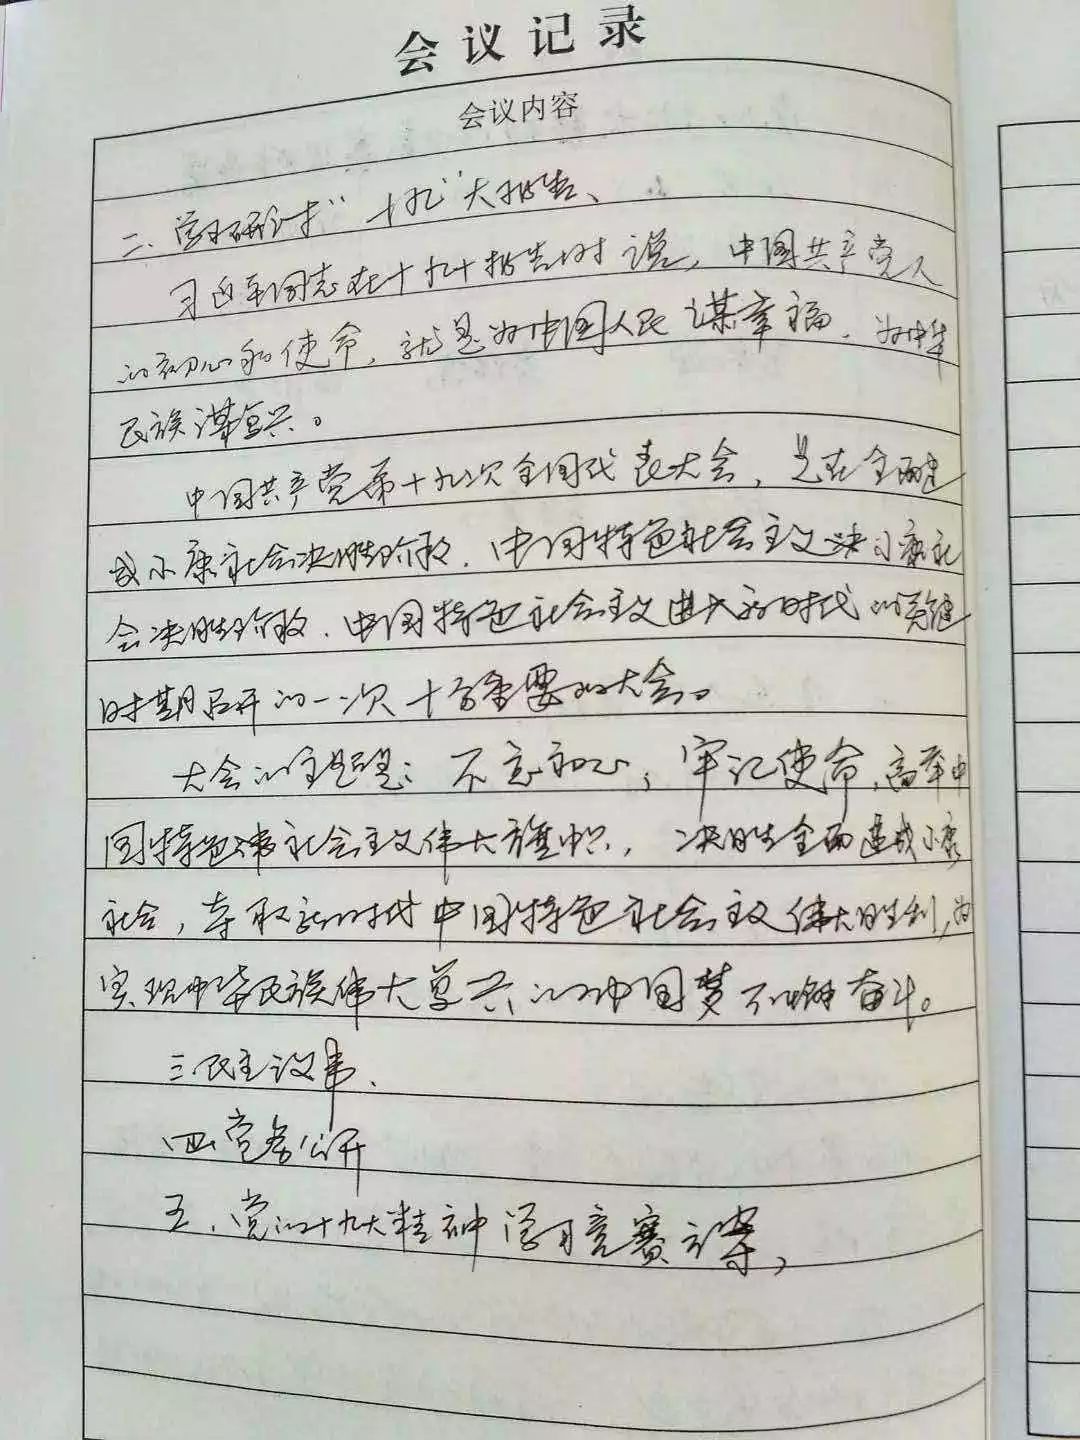 会议记录
会议内容
二、学习研讨“十九”大报告、
习近平同志在十九十报告时说，中国共产党人
的初心和使命，就是为中国人民谋幸福，为中华
民族谋复兴。
中国共产党第十九次全国代表大会，是在全面建
成小康社会决胜阶段，中国特色社会主义决小康社
会决胜阶段，中国特色社会主义进入新时代的关键
时期召开的一次十分重要的大会。
大会的主题是：不忘初心，牢记使命，高举中
国特色社会主义伟大旗帜，决胜全面建成小康
社会，夺取新时代中国特色社会主义伟大胜利，为
实现中华民族伟大复兴的中国梦不懈奋斗。
三、民主议事、
四、党务公开
五、党的十九大精神学习竞赛